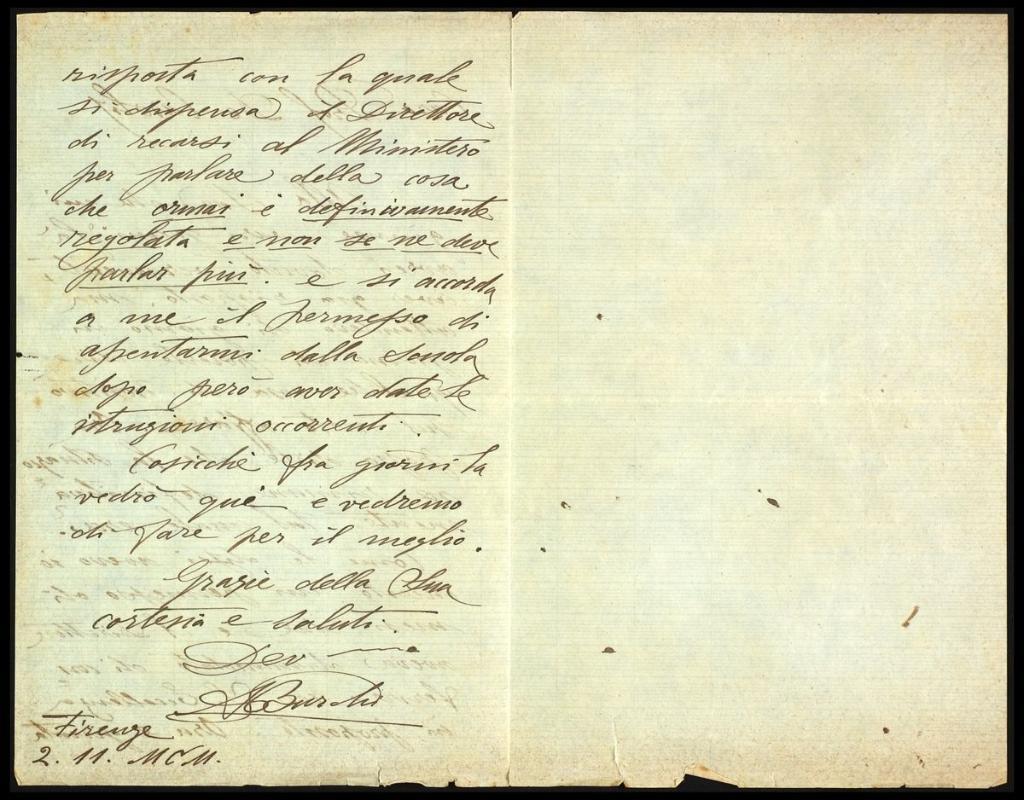 risposta con la quale
si dispensa il Direttore
di recarsi al Ministero
per parlare della cosa
che ormai è definivamente
regolata e non se ne deve
parlar più. e si accorda
a me il permesso di
assentarmi dalla scuola
dopo però aver date le
istruzioni occorrenti.
Cosicchè fra giorni la
vedrò quì e vedremo
di fare per il meglio.
Grazie della Sua
cortesia e saluti.
Dev
ABurchi
Firenze
2. 11. MCM.